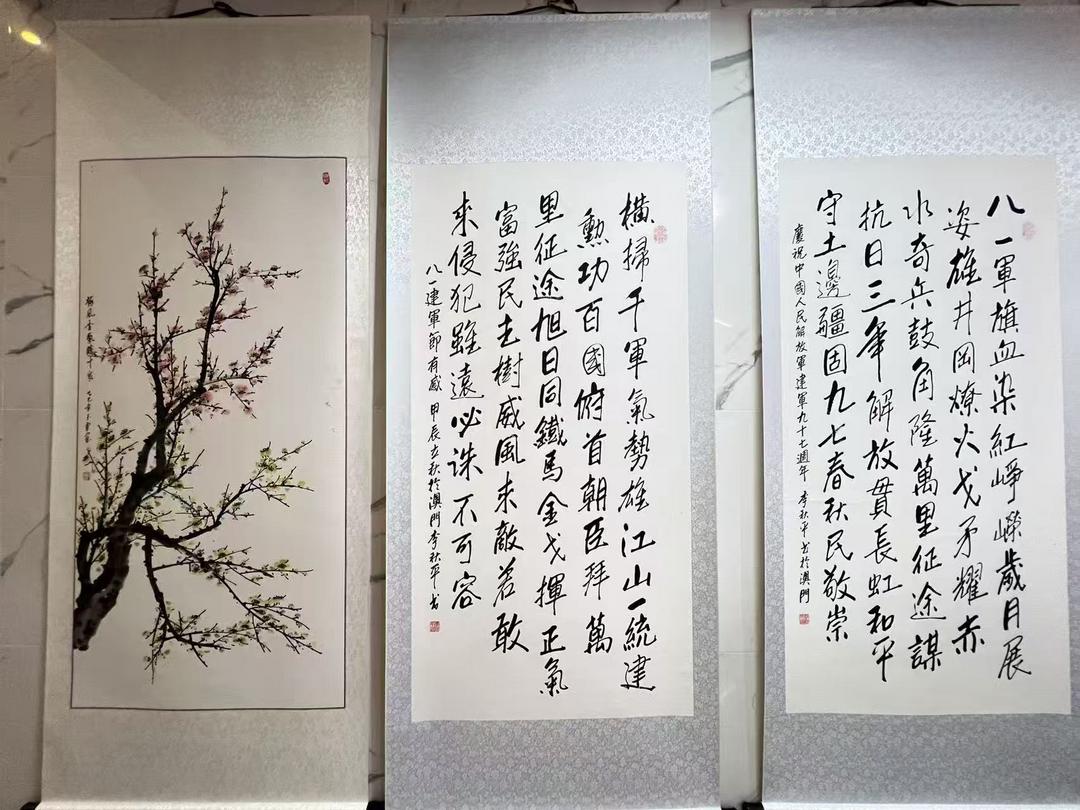 八一軍旗血染紅崢嶸歲月展
姿雄井岡燎火戈矛耀赤
水奇兵鼓角隆萬里征途謀
抗日三年解放貫長虹和平
守土邊疆固九七春秋民敬崇
慶祝中國人民解放軍建軍九十七週年 李秋平書於澳門
橫掃千軍氣勢雄江山一統建
勳功百國俯首朝臣拜萬
里征途旭日同鐵馬金戈揮正氣
富強民主樹威風來敵若敢
來侵犯雖遠必誅不可容
八一建軍節有感 甲辰立秋於澳門李秋平書